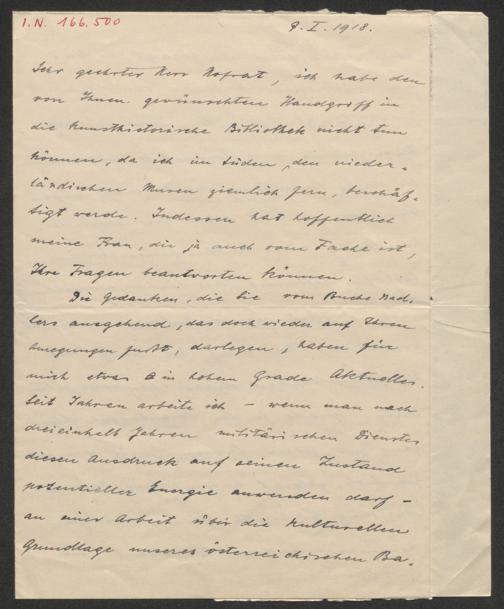 I.N. 166.500
9.I.1918.
Sehr geehrter Herr Hofrat, ich habe den
von Ihnen gewünschten Handgriff in
die kunsthistorische Bibliothek nicht tun
können, da ich im Süden, den nieder-
ländischen Musen ziemlich fern, beschäf-
tigt werde. Indessen hat hoffentlich
meine Frau, die ja auch vom Fache ist,
Ihre Fragen beantworten können.
Die Gedanken, die Sie vom Buche Nad-
lers ausgehend, das doch wieder auf Ihren
Anregungen fußt, darlegen, haben für
mich etwas in hohem Grade Aktuelles.
Seit Jahren arbeite ich – wenn man nach
dreieinhalb Jahren militärischen Dienstes
diesen Ausdruck auf seinen Zustand
potentieller Energie anwenden darf –
an einer Arbeit über die kulturellen
Grundlage unseres österreichischen Ba-